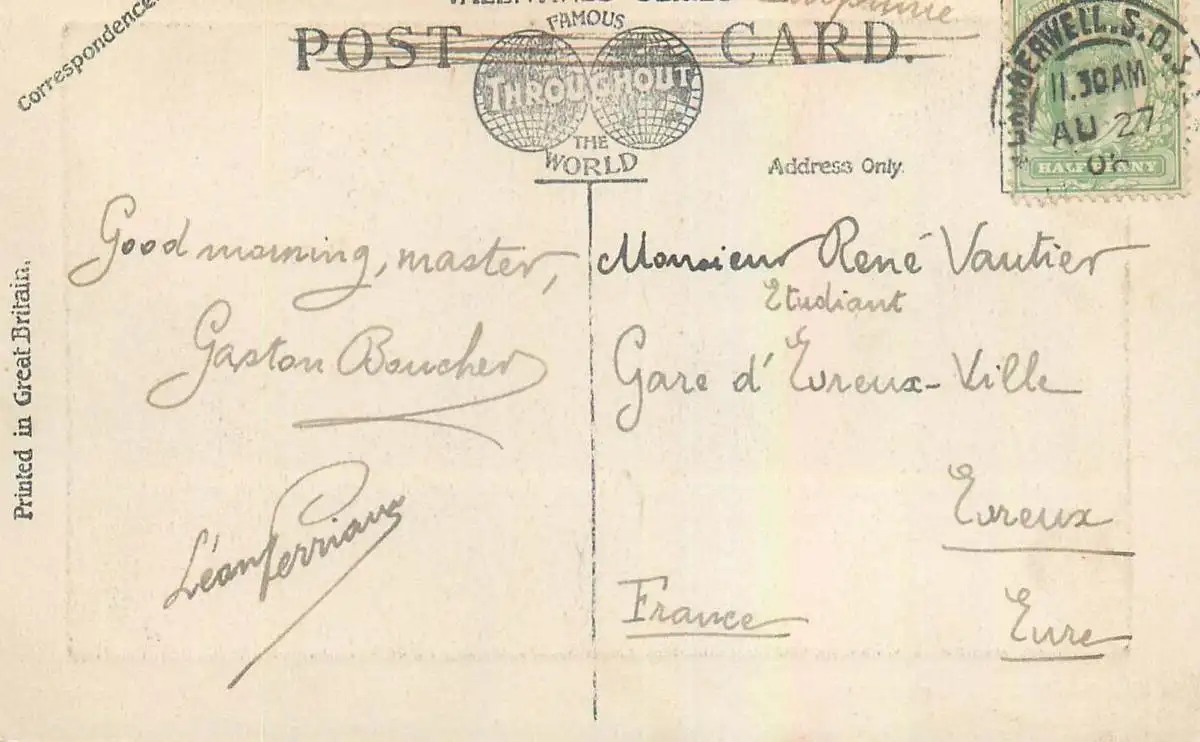 Correspondence.
VALENTINES SERIES
Imprimé
POST CARD.
FAMOUS
THROUGHOUT
THE
WORLD
Address Only.
CAMBERWELL. S.O. S.E.
11.30AM
AU 27
HALFPENNY
Printed in Great Britain.
Good morning, master,
Gaston Boucher
Léon Perriaux
Monsieur René Vautier
Etudiant
Gare d'Evreux-Ville
Evreux
France
Eure